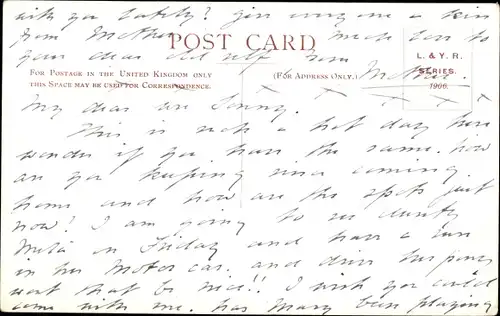 with you lately? give every one a kiss
from Mother much love to
your dear old self from
Mother
POST CARD
L. & Y. R.
SERIES.
1906.
FOR POSTAGE IN THE UNITED KINGDOM ONLY
THIS SPACE MAY BE USED FOR CORRESPONDENCE.
(FOR ADDRESS ONLY.)
X X X X X X
My dear wee Jenny.
This is such a hot day here
wonder if you have the same. how
are you keeping since coming
home and how are the spots just
now? I am going to see aunty
Meta on Friday and have a run
in her Motor car. and drive the pony
wont that be nice!! I wish you could
come with me. has Mary been playing